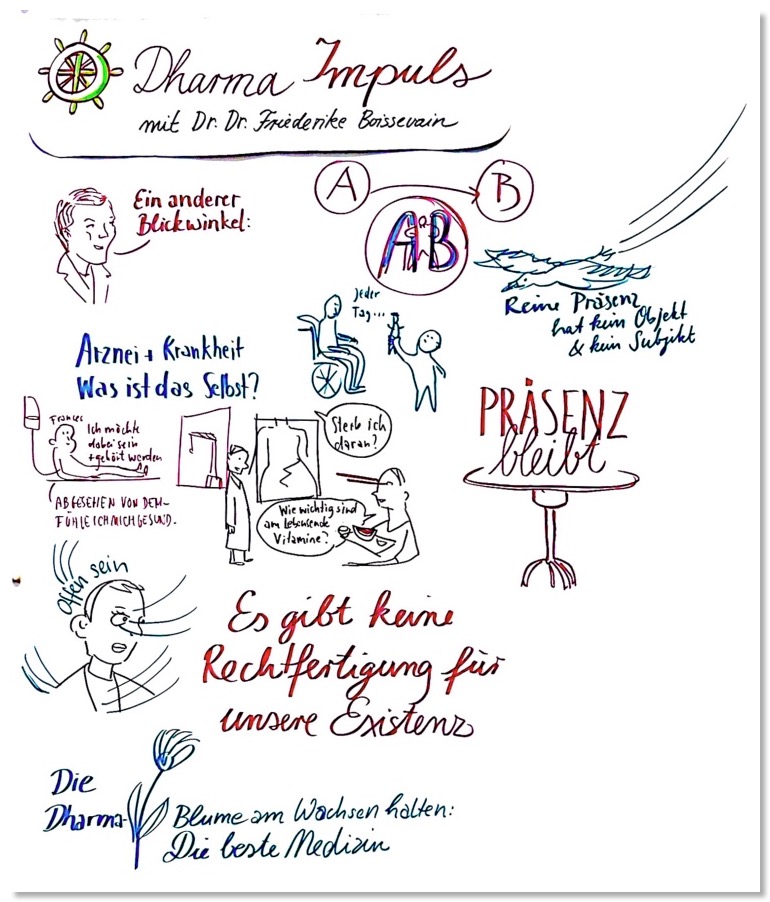 Dharma Impuls
mit Dr. Dr. Friederike Boissevain
Ein anderer
Blickwinkel:
A
B
AB
Reine Präsenz
hat kein Objekt
& kein Subjekt
Jeder
Tag...
Arznei + Krankheit
Was ist das Selbst?
Frances
Ich möchte
dabei sein
+ gehört werden
ABGESEHEN VON DEM-
FÜHLE ICH MICH GESUND.
Sterb ich
daran?
Wie wichtig sind
am Lebensende
Vitamine?
PRÄSENZ
bleibt
Offen sein
Es gibt keine
Rechtfertigung für
unsere Existenz
Die
Dharma-
Blume am Wachsen halten:
Die beste Medizin